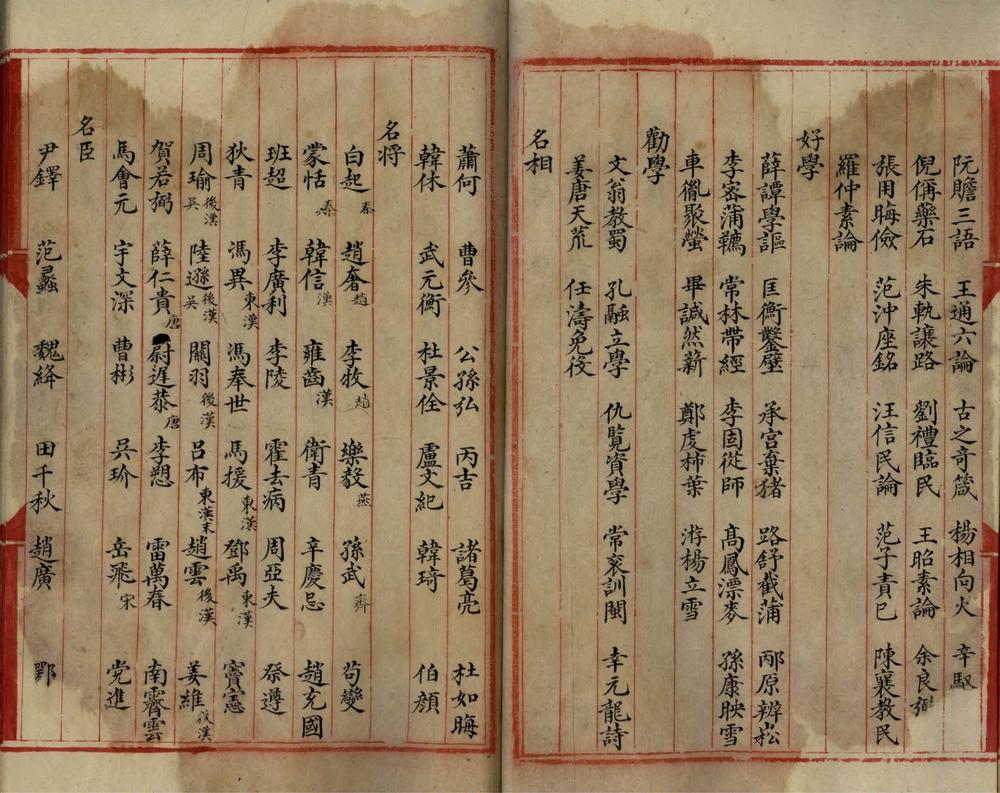 阮瞻三語 王通六論 古之奇箴 楊相向火 辛馭
倪偁藥石 朱軌讓路 劉禮臨民 王昭素論 余良弼
張用晦儉 范沖座銘 汪信民論 范子責已 陳襄教民
羅仲素論
好學
薛譚學謳 匡衡鑿壁 承宮棄猪 路舒截蒲 邴原辨崧
李密蒲韉 常林帶經 李固從師 高鳳漂麥 孫康映雪
車胤聚螢 畢諴然薪 鄭虔柿葉 游楊立雪
勸學
文翁教蜀 孔融立學 仇覧資學 常衮訓閩 幸元龍詩
姜唐天荒 任濤免役
名相
蕭何 曹參 公孫弘 丙吉 諸葛亮 杜如晦
韓休 武元衡 杜景佺 盧文紀 韓琦 伯顔
名将
白起秦 趙奢趙 李牧趙 樂毅燕 孫武齊 苟變
蒙恬秦 韓信漢 雍齒漢 衛青 辛慶忌 趙充國
班超 李廣利 李陵 霍去病 周亞夫 祭遵
狄青 馮異東漢 馮奉世 馬援東漢 鄧禹東漢 竇憲
周瑜後漢吳 陸遜後漢吳 關羽後漢 呂布東漢末 趙雲後漢 姜維後漢
賀若弼 薛仁貴唐 尉遲恭唐 李愬 雷萬春 南霽雲
馬會元 宇文深 曹彬 吳玠 岳飛宋 党進
名臣
尹鐸 范蠡 魏絳 田千秋 趙廣 鄂